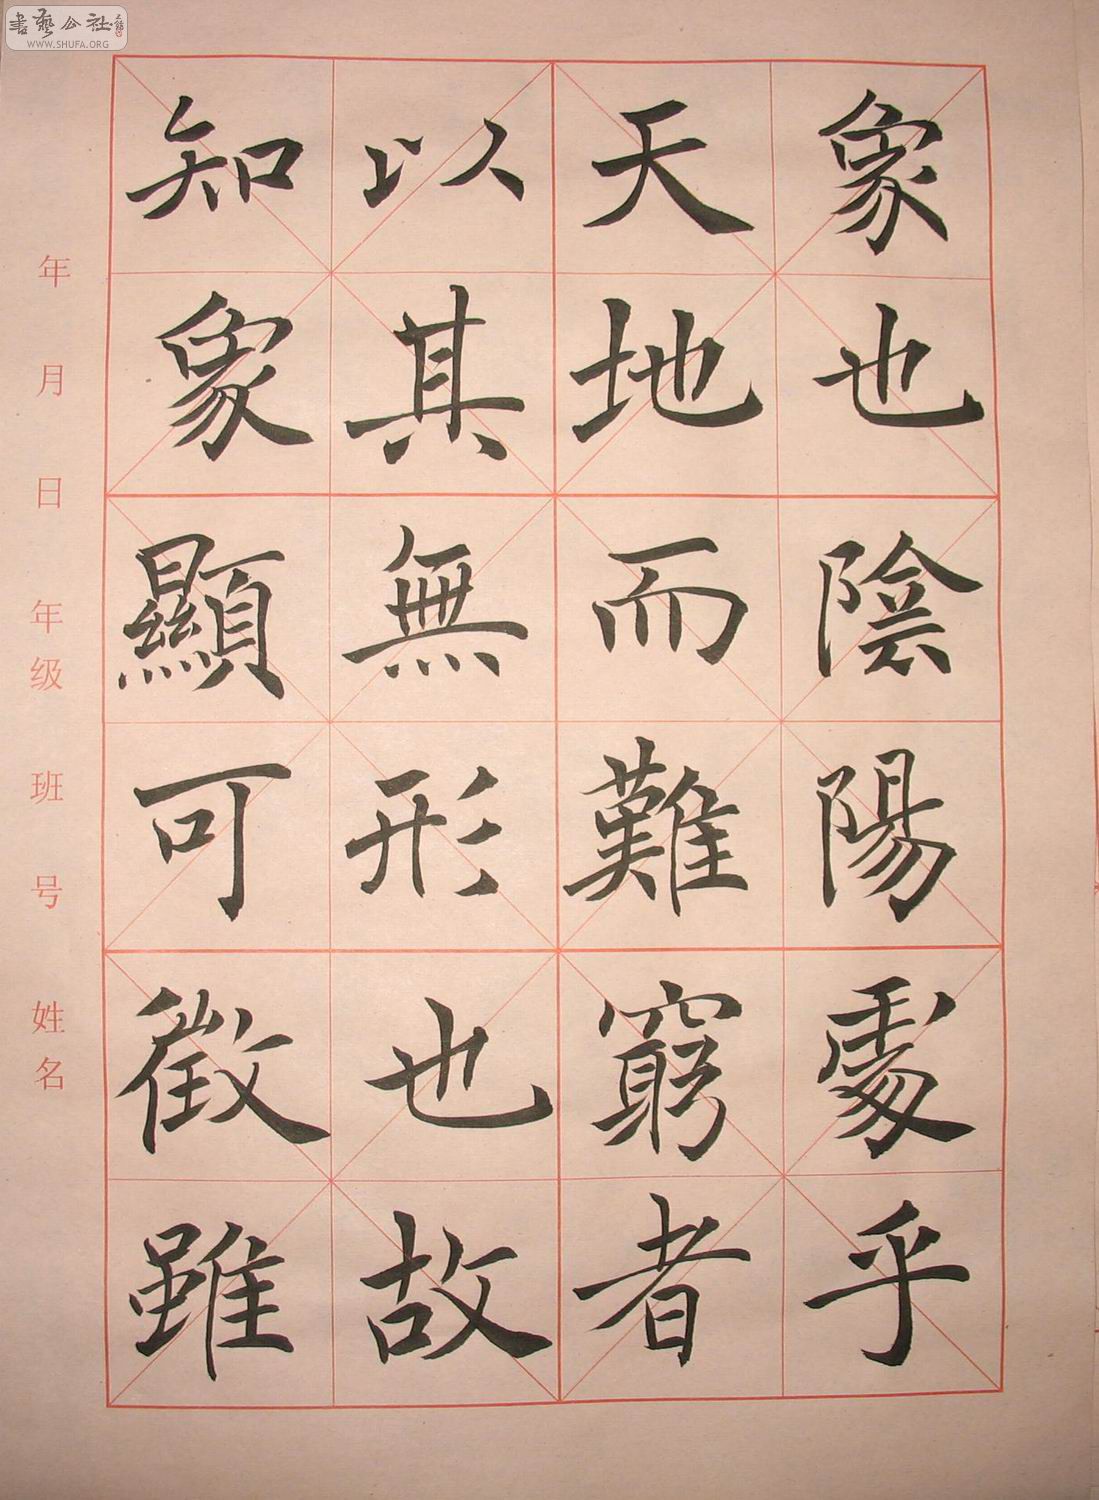 象也陰陽處乎
天地而難窮者
以其無形也故
知象顯可徵雖
年 月 日 年级 班 号 姓名
書藝公社
WWW.SHUFA.ORG